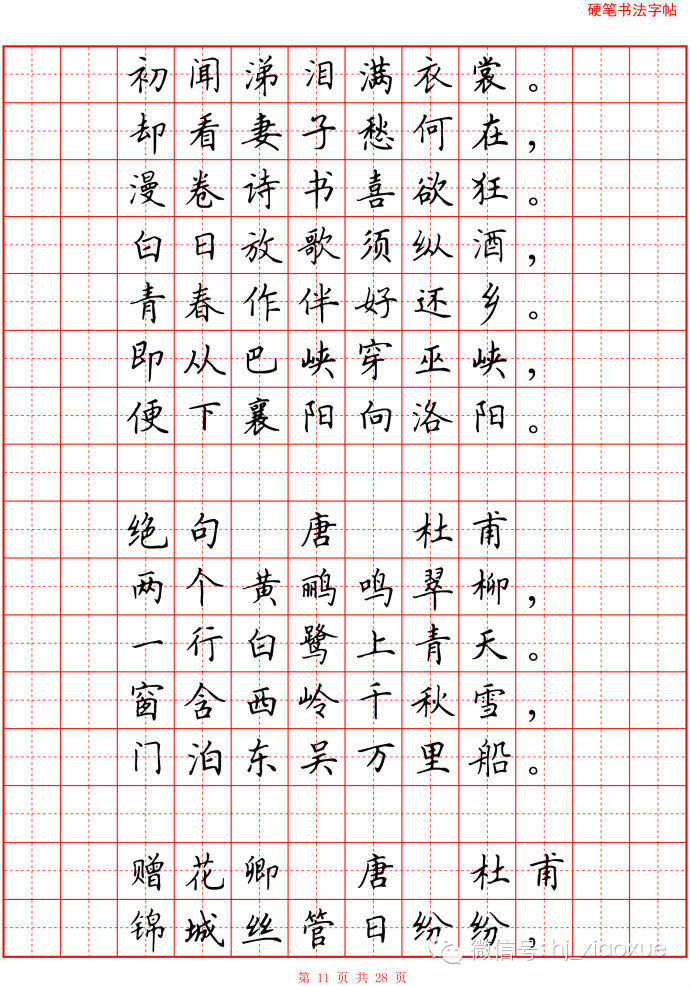 硬笔书法字帖
初闻涕泪满衣裳。
却看妻子愁何在，
漫卷诗书喜欲狂。
白日放歌须纵酒，
青春作伴好还乡。
即从巴峡穿巫峡，
便下襄阳向洛阳。
绝句 唐 杜甫
两个黄鹂鸣翠柳，
一行白鹭上青天。
窗含西岭千秋雪，
门泊东吴万里船。
赠花卿 唐 杜甫
锦城丝管日纷纷，
微信号: hj_xiaoxue
第 11 页 共 28 页